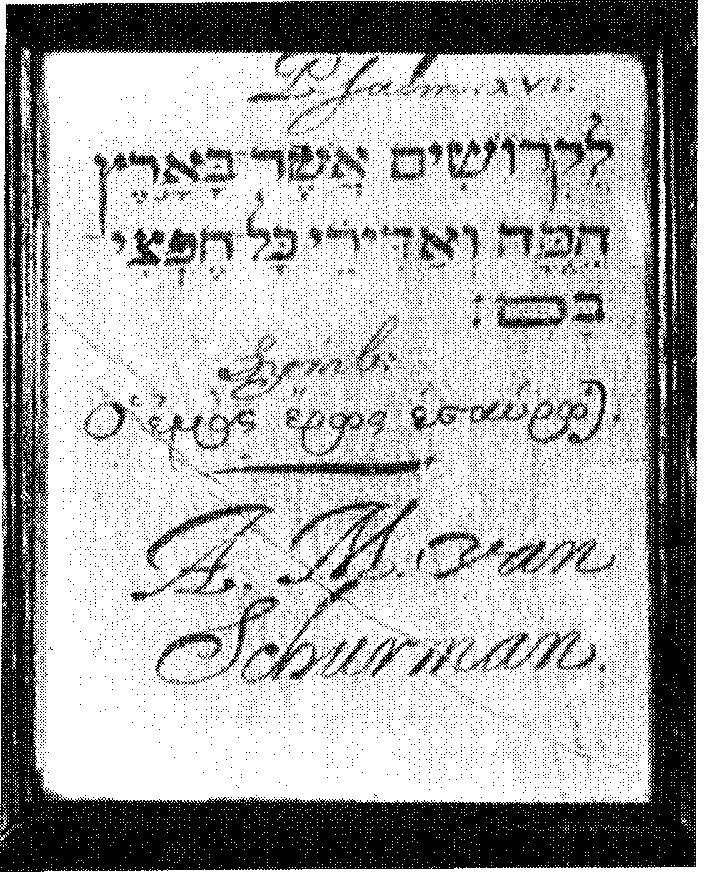 Psalm. xvi.
לִקְדוֹשִׁים אֲשֶׁר בָּאָרֶץ
הֵמָּה וְאַדִּירֵי כָּל חֶפְצִי
בָם׃
Symb:
Ὁ ἐμὸς ἔρως ἐσταύρω).
A. M. van
Schurman.